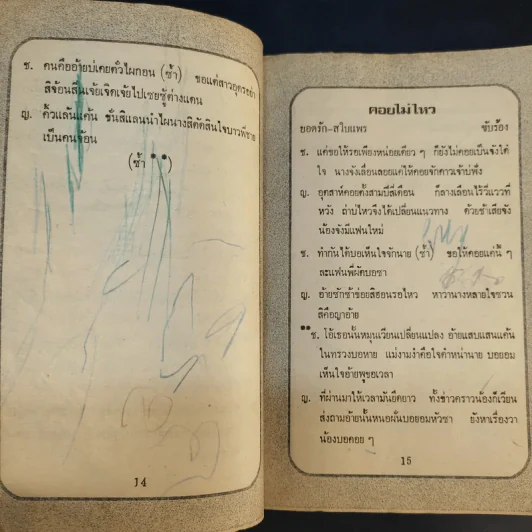 ช. คนคืออ้ายบ่เคยตั๋วไผกอน (ซ้ำ) ขอแต่สาวอุดรอย่า
สิจ้อนสิ้นเจ้ยเจิดเจ้ยไปเซยซู้ต่างแคน
ญ. คิ้วแล้นแค้น ขั่นสิแลนนำไผนางสิตัดสินใจบาวพี่ชาย
เป็นคนจ้อน
(ซ้ำ **)
14
คอยไม่ไหว
ยอดรัก-สใบแพร ขับร้อง
ช. แค่ขอให้รอเพียงหน่อยเดียว ๆ ก็ยังไม่คอยเป็นจั่งได๋
ใจ นางจั่งเลื่อนลอยแค่ให้คอยจักคาวเจ้าบ่พึ่ง
ญ. อุตสาห์คอยตั้งสามปีสี่เดือน ก็ลางเลือนไร้วี่แววที่
หวัง ถ่าบ่ไหวจึงได้เปลี่ยนแนวทาง ด้วยช้าเสียจัง
น้องจังมีแฟนใหม่
ช. ทำกันได้บอเห็นใจจักนาย (ซ้ำ) ขอให้คอยแค่นี้ ๆ
ละแฟนพี่ผัดบอซา
ญ. อ้ายชักช้าซ่อยสิฮอนรอไหว หาวานางหลายใจซวน
สิคือญาอ้าย
** ช. โอ้เธอนั้นหมุนเวียนเปลี่ยนแปลง อ้ายแสบแสนแค้น
ในทรวงบอหาย แม่งามงำคือใจดำหน่านาย บอยอม
เห็นใจอ้ายพุขอเวลา
ญ. ที่ผ่านมาให้เวลามันยืดยาว ทั้งข่าวคราวน้องก็เวียน
ส่งถามอ้ายนั้นหนอผันบอยอมหัวซา ยังหาเรื่องวา
น้องบอคอย ๆ
15